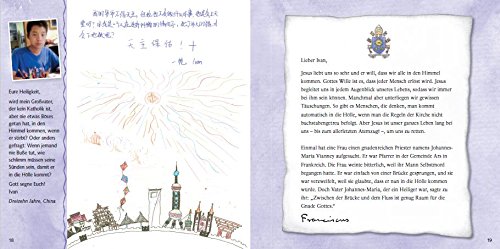 天主保佑!
Ivan
Eure Heiligkeit,
wird mein Großvater,
der kein Katholik ist,
aber nie etwas Böses
getan hat, in den
Himmel kommen, wenn
er stirbt? Oder anders
gefragt: Wenn jemand
nie Buße tut, wie
schlimm müssen seine
Sünden sein, damit er
in die Hölle kommt?
Gott segne Euch!
Ivan
Dreizehn Jahre, China
18
Lieber Ivan,
Jesus liebt uns so sehr und er will, dass wir alle in den Himmel
kommen. Gottes Wille ist es, dass jeder Mensch erlöst wird. Jesus
begleitet uns in jedem Augenblick unseres Lebens, sodass wir immer
bei ihm sein können. Manchmal aber unterliegen wir gewissen
Täuschungen. So gibt es Menschen, die denken, man kommt
automatisch in die Hölle, wenn man die Regeln der Kirche nicht
buchstabengetreu befolgt. Aber Jesus ist unser ganzes Leben lang bei
uns – bis zum allerletzten Atemzug –, um uns zu retten.
Einmal hat eine Frau einen gnadenreichen Priester namens Johannes-
Maria Vianney aufgesucht. Er war Pfarrer in der Gemeinde Ars in
Frankreich. Die Frau weinte bitterlich, weil ihr Mann Selbstmord
begangen hatte. Er war einfach von einer Brücke gesprungen, und sie
war verzweifelt, weil sie glaubte, dass er nun in die Hölle kommen
würde. Doch Vater Johannes-Maria, der ein Heiliger war, sagte zu
ihr: „Zwischen der Brücke und dem Fluss ist genug Raum für die
Gnade Gottes.“
Franciscus
19